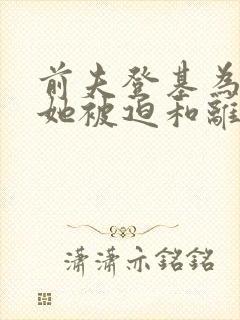 前夫登基為
她被迫和離
瀟瀟亦銘銘